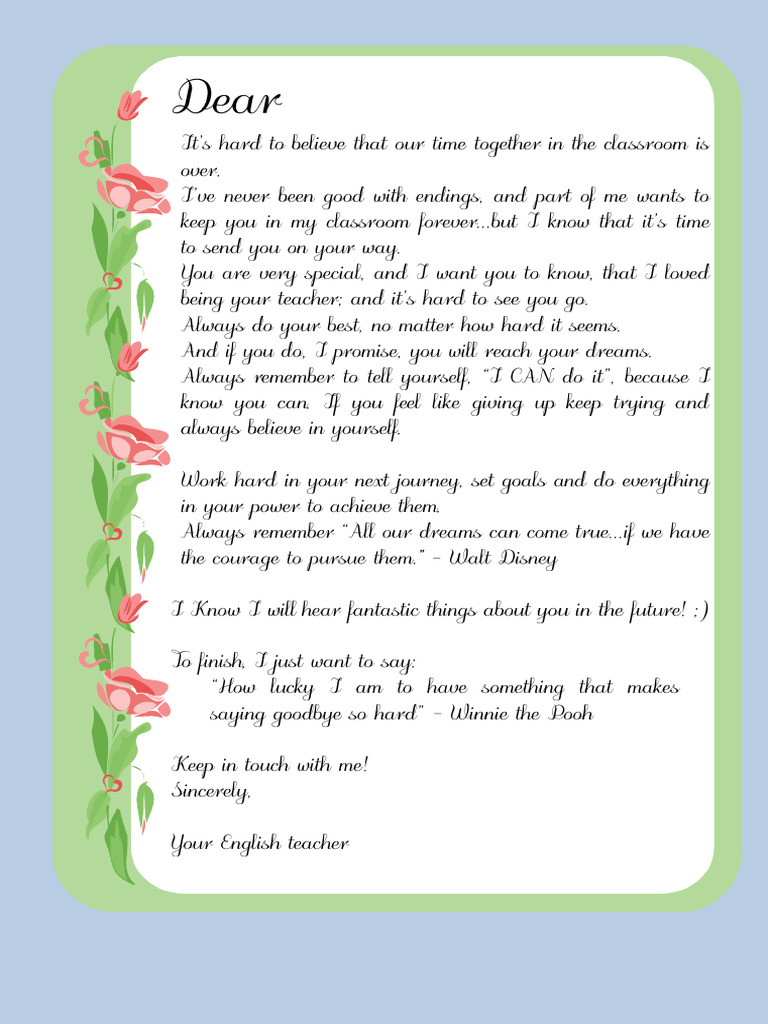 Dear
It's hard to believe that our time together in the classroom is
over.
I've never been good with endings, and part of me wants to
keep you in my classroom forever...but I know that it's time
to send you on your way.
You are very special, and I want you to know, that I loved
being your teacher; and it's hard to see you go.
Always do your best, no matter how hard it seems.
And if you do, I promise, you will reach your dreams.
Always remember to tell yourself, "I CAN do it", because I
know you can. If you feel like giving up keep trying and
always believe in yourself.
Work hard in your next journey, set goals and do everything
in your power to achieve them.
Always remember "All our dreams can come true...if we have
the courage to pursue them." - Walt Disney
I Know I will hear fantastic things about you in the future! ;)
To finish, I just want to say:
"How lucky I am to have something that makes
saying goodbye so hard" - Winnie the Pooh
Keep in touch with me!
Sincerely,
Your English teacher